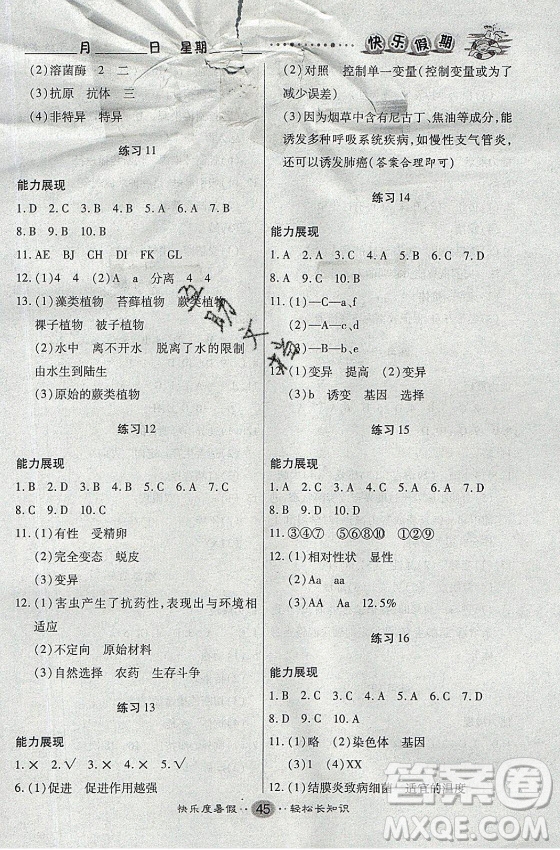 月 日 星期
快乐假期
(2)溶菌酶 2 二
(3)抗原 抗体 三
(4)非特异 特异
练习 11
能力展现
1. D 2. C 3. B 4. C 5. A 6. A 7. D
8. B 9. D 10. B
11. AE BJ CH DI FK GL
12. (1)4 4 (2)A a 分离 4 4
13. (1)藻类植物 苔藓植物 蕨类植物
裸子植物 被子植物
(2)水中 离不开水 脱离了水的限制
由水生到陆生
(3)原始的蕨类植物
练习 12
能力展现
1. B 2. D 3. B 4. C 5. A 6. A 7. B
8. C 9. D 10. D
11. (1)有性 受精卵
(2)完全变态 蜕皮
(3)变异
12. (1)害虫产生了抗药性,表现出与环境相
适应
(2)不定向 原始材料
(3)自然选择 农药 生存斗争
练习 13
能力展现
1. × 2. × 3. √ 4. × 5. √
6. (1)促进 促进作用越强
(2)对照 控制单一变量(控制变量或为了
减少误差)
(3)因为烟草中含有尼古丁、焦油等成分,能
诱发多种呼吸系统疾病,如慢性支气管炎,
还可以诱发肺癌(答案合理即可)
练习 14
能力展现
1. A 2. C 3. B 4. D 5. C 6. A 7. D
8. D 9. D 10. A
11. (1)—C—a、f
(2)—A—c、d
(3)—B—b、e
12. (1)变异 提高 (2)变异
(3)b 诱变 基因 选择
练习 15
能力展现
1. D 2. C 3. B 4. A 5. A 6. A 7. D
8. D 9. D 10. D
11. ③④⑦ ⑤⑥⑧⑩ ①②⑨
12. (1)相对性状 显性
(2)Aa aa
(3)Aa aa 12.5%
练习 16
能力展现
1. B 2. C 3. D 4. C 5. C 6. D 7. D
8. D 9. C 10. A
11. (1)略 (2)染色体 基因
(3)4 (4)XX
12. (1)结膜炎致病细菌 适宜的温度
快乐度暑假··45··轻松长知识
答案圈
MXQE.COM